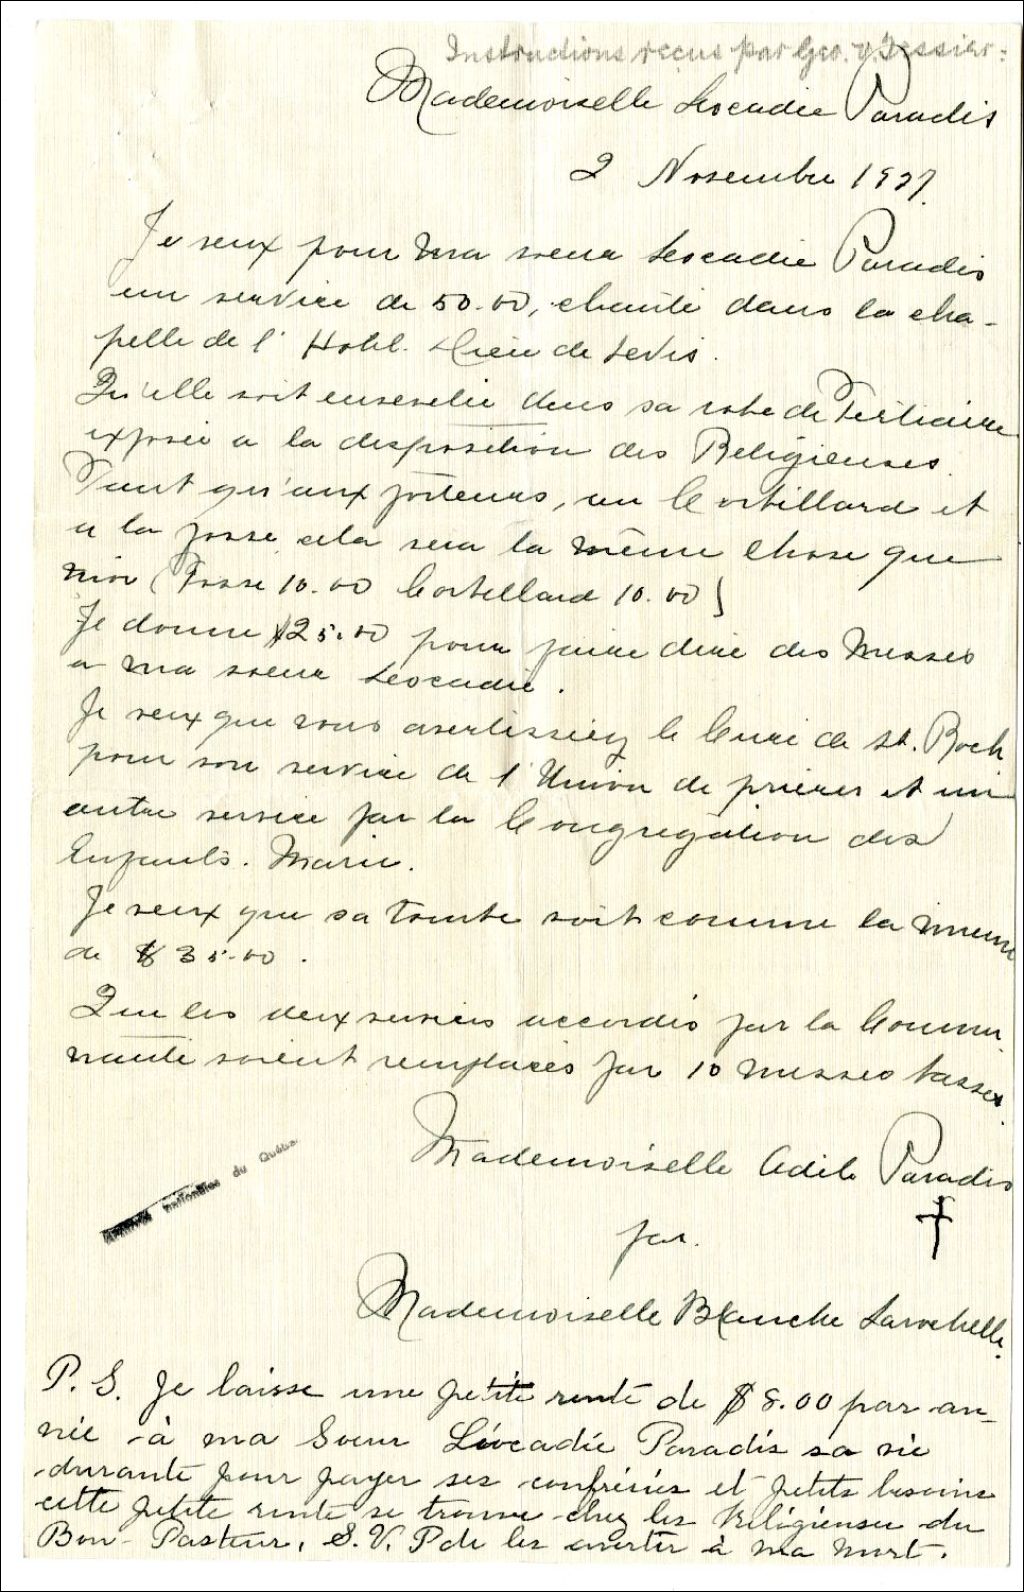 Instructions reçus par Geo. V. Tessier:
Mademoiselle Leocadie Paradis
2 Novembre 1927.
Je veux pour ma soeur Leocadie Paradis
un service de 50.00, chanté dans la cha-
pelle de l'Hotel. Dieu de Levis.
Qu'elle soit ensevelie dans sa robe de Tertiaire
exposée a la disposition des Religieuses.
Tant qu'aux porteurs, un Corbillard et
a la fosse cela sera la même chose que
moi (Fosse 10.00 Corbillard 10.00)
Je donne $25.00 pour faire dire des Messes
a ma soeur Leocadie.
Je veux que vous avertissiez le Curé de St. Roch
pour son service de l'Union de prières et un
autre service par la Congrégation des
Enfants. Marie.
Je veux que sa tombe soit comme la mienne
de $35.00.
Que les deux services accordés par la Commu
nauté soient remplacés par 10 messes basses.
Mademoiselle Adèle Paradis
par.
Mademoiselle Blanche Larochelle.
Archives nationales du Québec
P.S. Je laisse une petite rente de $8.00 par an-
née à ma Soeur Léocadie Paradis sa vie
durante pour payer ses confréries et petits besoins
cette petite rente se trouve chez les Religieuses du
Bon-Pasteur, S.V.P de les avertir à ma mort.